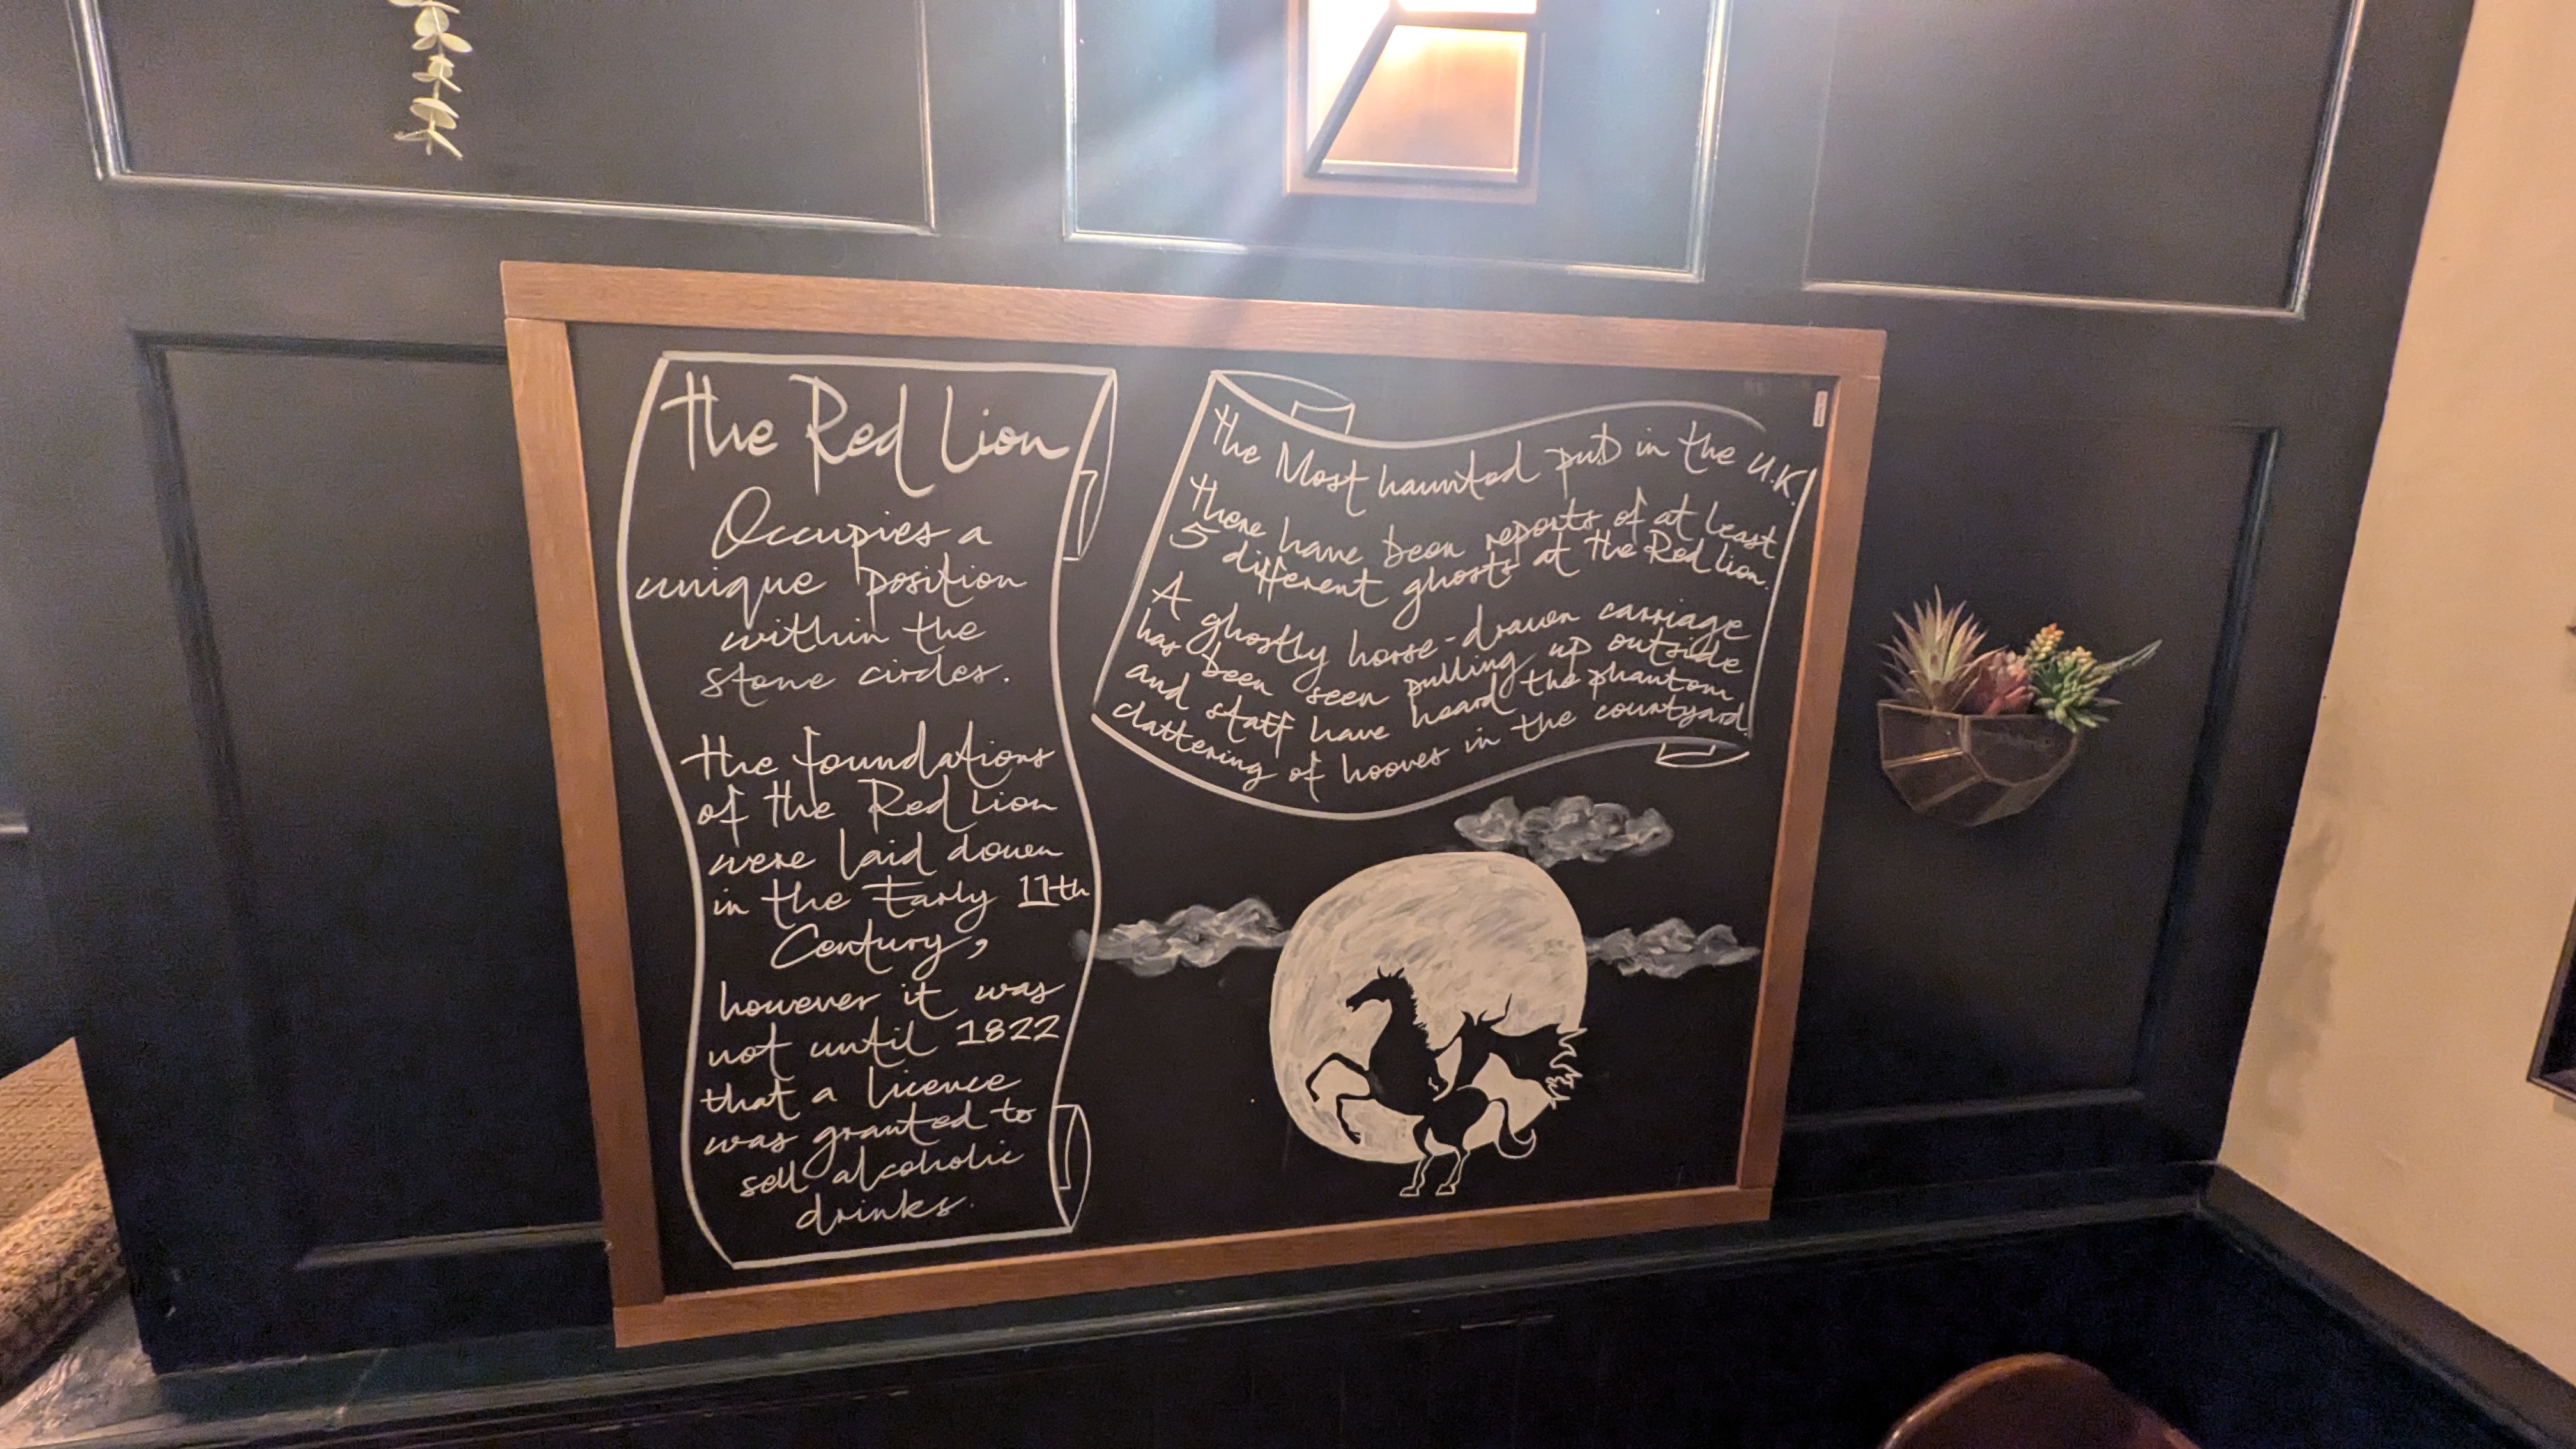 the Red Lion
Occupies a
unique position
within the
stone circles.
the foundations
of the Red Lion
were laid down
in the Early 17th
Century,
however it was
not until 1822
that a licence
was granted to
sell alcoholic
drinks.
the Most haunted pub in the U.K.
there have been reports of at least
5 different ghosts at the Red Lion.
A ghostly horse-drawn carriage
has been seen pulling up outside
and staff have heard the phantom
clattering of hooves in the courtyard.